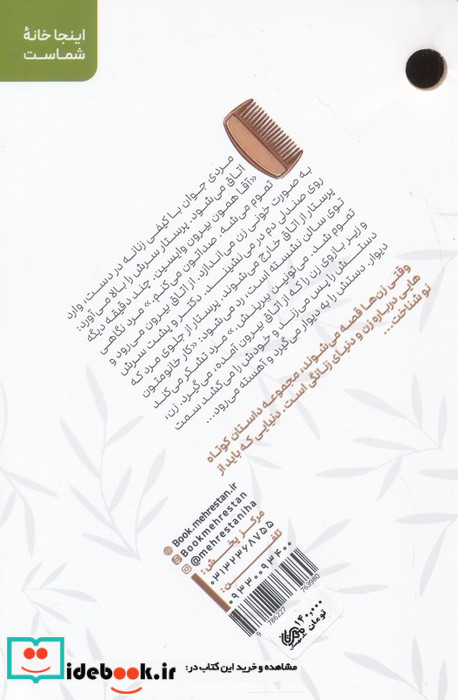 اینجا خانهٔ
شماست
مردی جوان با کیفی زنانه در دست، وارد
اتاق می‌شود. پرستار سرش را بالا می‌آورد:
«آقا همون بیرون وایسین، چند دقیقه دیگه
تموم می‌شه. صداتون می‌کنم.» مرد نگاهی
به صورت خونی زن می‌اندازد. از اتاق بیرون می‌رود و
روی صندلی دم در می‌نشیند. دکتر و پشت سرش
پرستار از اتاق خارج می‌شوند. پرستار از جلوی مرد که
توی سالن نشسته است، رد می‌شود: «کار خانومتون
تموم شد. می‌تونین ببرینش.» مرد تشکر می‌کند
و زیر بازوی زن را که از اتاق بیرون آمده، می‌گیرد. زن،
دستش را پس می‌زند و خودش را می‌کشد سمت
دیوار. دستش را به دیوار می‌گیرد و آهسته می‌رود...
وقتی زن‌ها قصه می‌شوند، مجموعه داستان کوتاه
هایی درباره زن و دنیای زنانگی است. دنیایی که باید از
نو شناخت...
Book.mehrestan.ir
Bookmehrestan
@mehrestaniha
مرکز پخش:
۰۳۱۳۲۳۶۸۷۵۵
تلفن:
۰۹۳۳۰۰۹۳۴۰۰
9 786227 769980
۱۴۰,۰۰۰
تومان
مشاهده و خرید این کتاب در:
idebook.ir